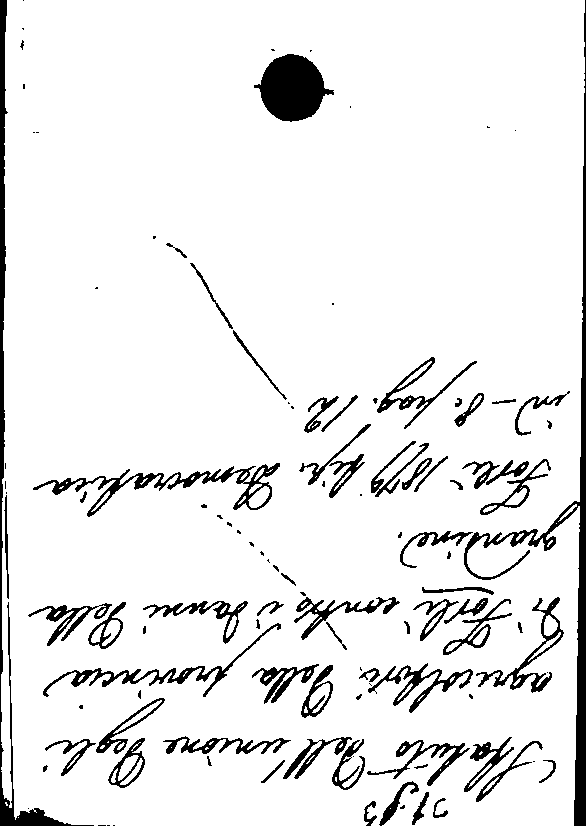 Statuto dell'unione degli
agricoltori della provincia
di Forlì contro i danni della
grandine.
Forlì 1879 tip. Democratica
in-8. pag. 12